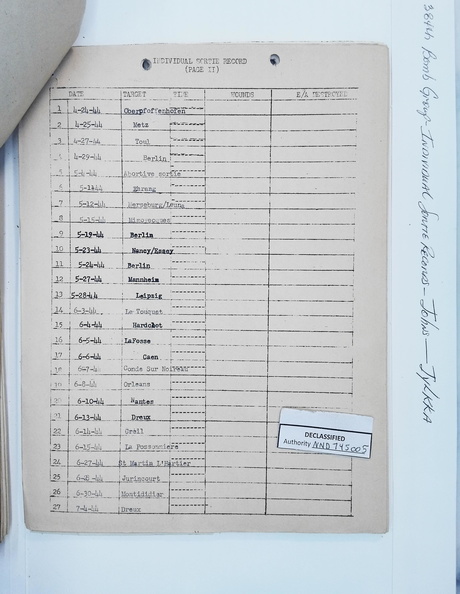 INDIVIDUAL SORTIE RECORD
(PAGE II)
DATE TARGET TIME WOUNDS E/A DESTROYED
1 4-24-44 Oberpfoffenhofen
2 4-25-44 Metz
3 4-27-44 Toul
4 4-29-44 Berlin
5 5-4-44 Abortive sortie
6 Ehrang
7 5-12-44 Merseburg/Leuna
8 5-15-44
9 5-19-44 Berlin
10 5-23-44 Nancy/Essey
11 5-24-44 Berlin
12 5-27-44 Mannheim
13 5-28-44 Leipzig
14 6-3-44 Le Touquet
15 6-4-44 Hardelot
16 6-5-44 LaFosse
17 6-6-44 Caen
18 6-7-44 Conde Sur
19 6-8-44 Orleans
20 6-10-44 Nantes
21 6-13-44 Dreux
22 6-14-44 Creil
23 6-15-44 La Possonniere
24 6-27-44 St Martin L'Hortier
25 6-28-44 Juvincourt
26 6-30-44 Montididier
27 7-4-44 Dreux
DECLASSIFIED
Authority NND 745005
384th Bomb Group - Individual Sortie Records - Johns — Tylkka